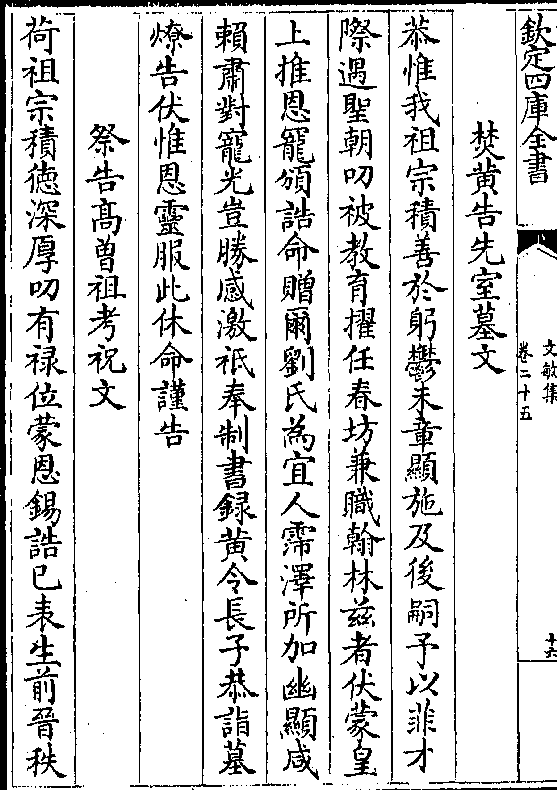 欽定四庫全書
文敏集
卷二十五
十六
焚黄告先室墓文
恭惟我祖宗積善於躬鬱未章顯施及後嗣予以菲才
際遇聖朝叨被教育擢任春坊兼職翰林兹者伏蒙皇
上推恩寵頒誥命贈爾劉氏為宜人霈澤所加幽顯咸
賴肅對寵光豈勝感激祇奉制書録黄令長子恭詣墓
燎告伏惟恩靈服此休命謹告
祭告髙曽祖考祝文
荷祖宗積徳深厚叨有禄位蒙恩錫誥已表生前晉秩